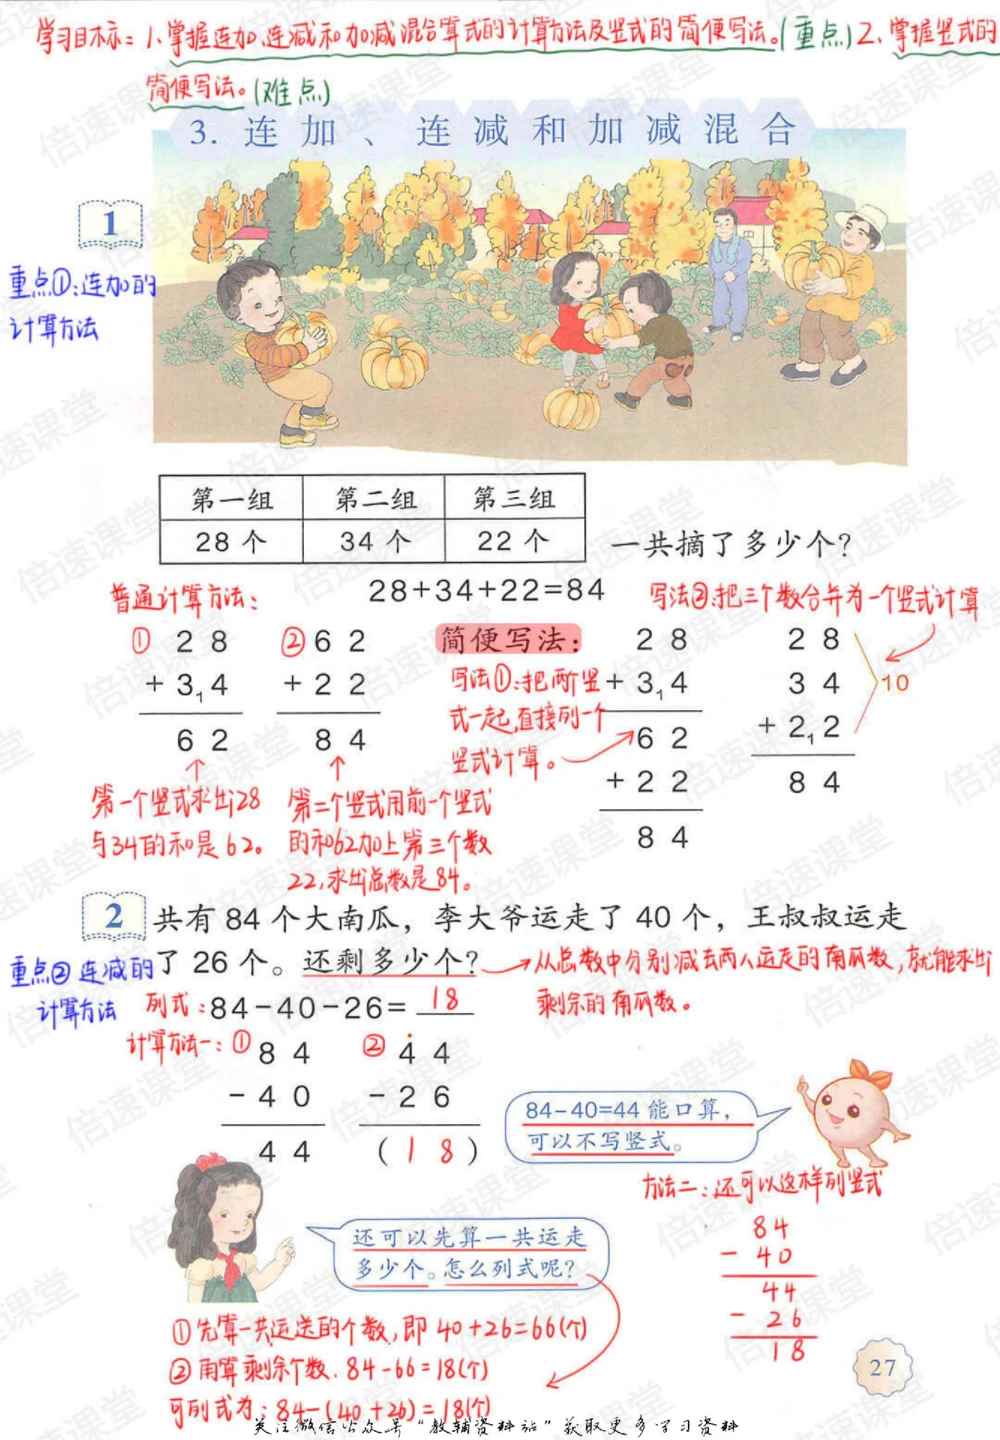 学习目标：1、掌握连加、连减和加减混合算式的计算方法及竖式的简便写法。(重点)2、掌握竖式的
简便写法。(难点)
3. 连加、连减和加减混合
1
重点①:连加的
计算方法
第一组 第二组 第三组
28 个 34 个 22 个
一共摘了多少个？
28+34+22=84
普通计算方法：
① 2 8
+ 3 1 4
6 2
② 6 2
+ 2 2
8 4
第一个竖式求出28
与34的和是62。
第二个竖式用前一个竖式
的和62加上第三个数
22,求出总数是84。
简便写法：
写法①:把两个竖
式一起,直接列一个
竖式计算。
2 8
+ 3 1 4
6 2
+ 2 2
8 4
写法②:把三个数合并为一个竖式计算
2 8
3 4
+ 2 1 2
8 4
10
2
共有 84 个大南瓜，李大爷运走了 40 个，王叔叔运走
了 26 个。还剩多少个？
从总数中分别减去两人运走的南瓜数,就能求出
剩余的南瓜数。
重点② 连减的
计算方法
列式：84-40-26= 18
计算方法一：① 8 4
- 4 0
4 4
② 4 4
- 2 6
( 1 8 )
84-40=44 能口算，
可以不写竖式。
方法二：还可以这样列竖式
84
- 40
44
- 26
18
还可以先算一共运走
多少个。怎么列式呢？
①先算一共运送的个数,即 40+26=66(个)
②用算剩余个数. 84-66=18(个)
可列式为：84-(40+26)=18(个)
27
关注微信公众号“教辅资料站”获取更多学习资料
倍速课堂